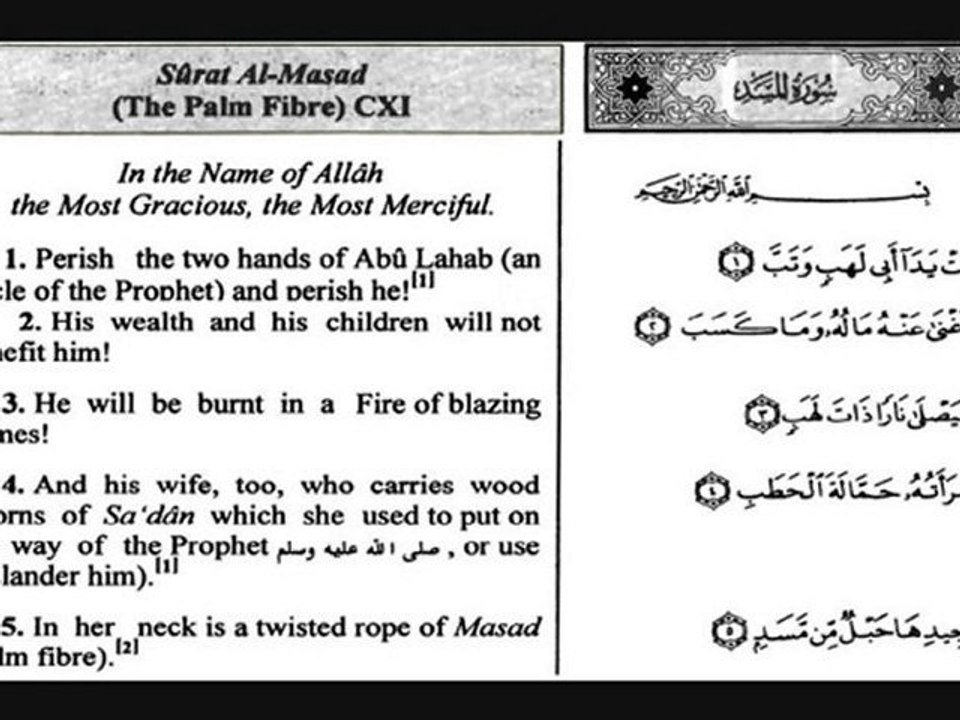 Sûrat Al-Masad
(The Palm Fibre) CXI
In the Name of Allâh
the Most Gracious, the Most Merciful.
1. Perish the two hands of Abû Lahab (an
cle of the Prophet) and perish he![1]
2. His wealth and his children will not
nefit him!
3. He will be burnt in a Fire of blazing
mes!
4. And his wife, too, who carries wood
orns of Sa‘dân which she used to put on
way of the Prophet صلى الله عليه وسلم , or use
lander him).[1]
5. In her neck is a twisted rope of Masad
lm fibre).[2]
سُورَةُ المَسَدِ
بِسْمِ ٱللَّهِ ٱلرَّحْمَٰنِ ٱلرَّحِيمِ
تْ يَدَآ أَبِى لَهَبٍ وَتَبَّ ١
غْنَىٰ عَنْهُ مَالُهُۥ وَمَا كَسَبَ ٢
يَصْلَىٰ نَارًا ذَاتَ لَهَبٍ ٣
رَأَتُهُۥ حَمَّالَةَ ٱلْحَطَبِ ٤
جِيدِهَا حَبْلٌ مِّن مَّسَدٍ ٥